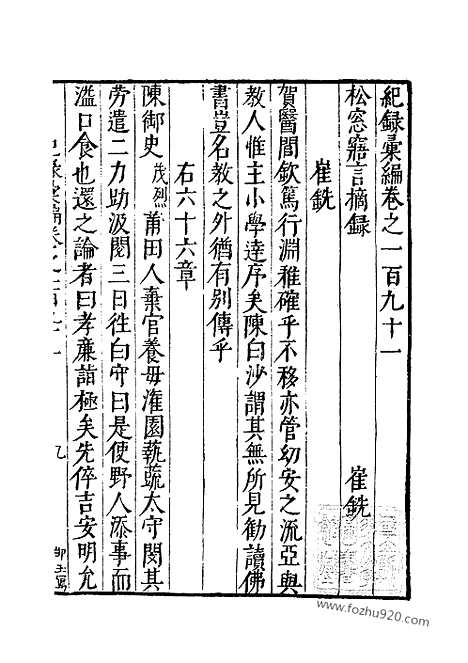 紀録彙編卷之一百九十一
松窓寤言摘録
崔銑
崔銑
賀醫閭欽篤行淵雅確乎不移亦管幼安之流亞與
教人惟主小學達序矣陳白沙謂其無所見勸讀佛
書豈名教之外猶有别傳乎
右六十六章
陳御史茂烈莆田人棄官養母潅園蓺蔬太守閔其
勞遣二力助汲閲三日徃白守曰是使野人添事而
溢口食也還之論者曰孝廉詣極矣先倅吉安明允
www.fozhu920.com